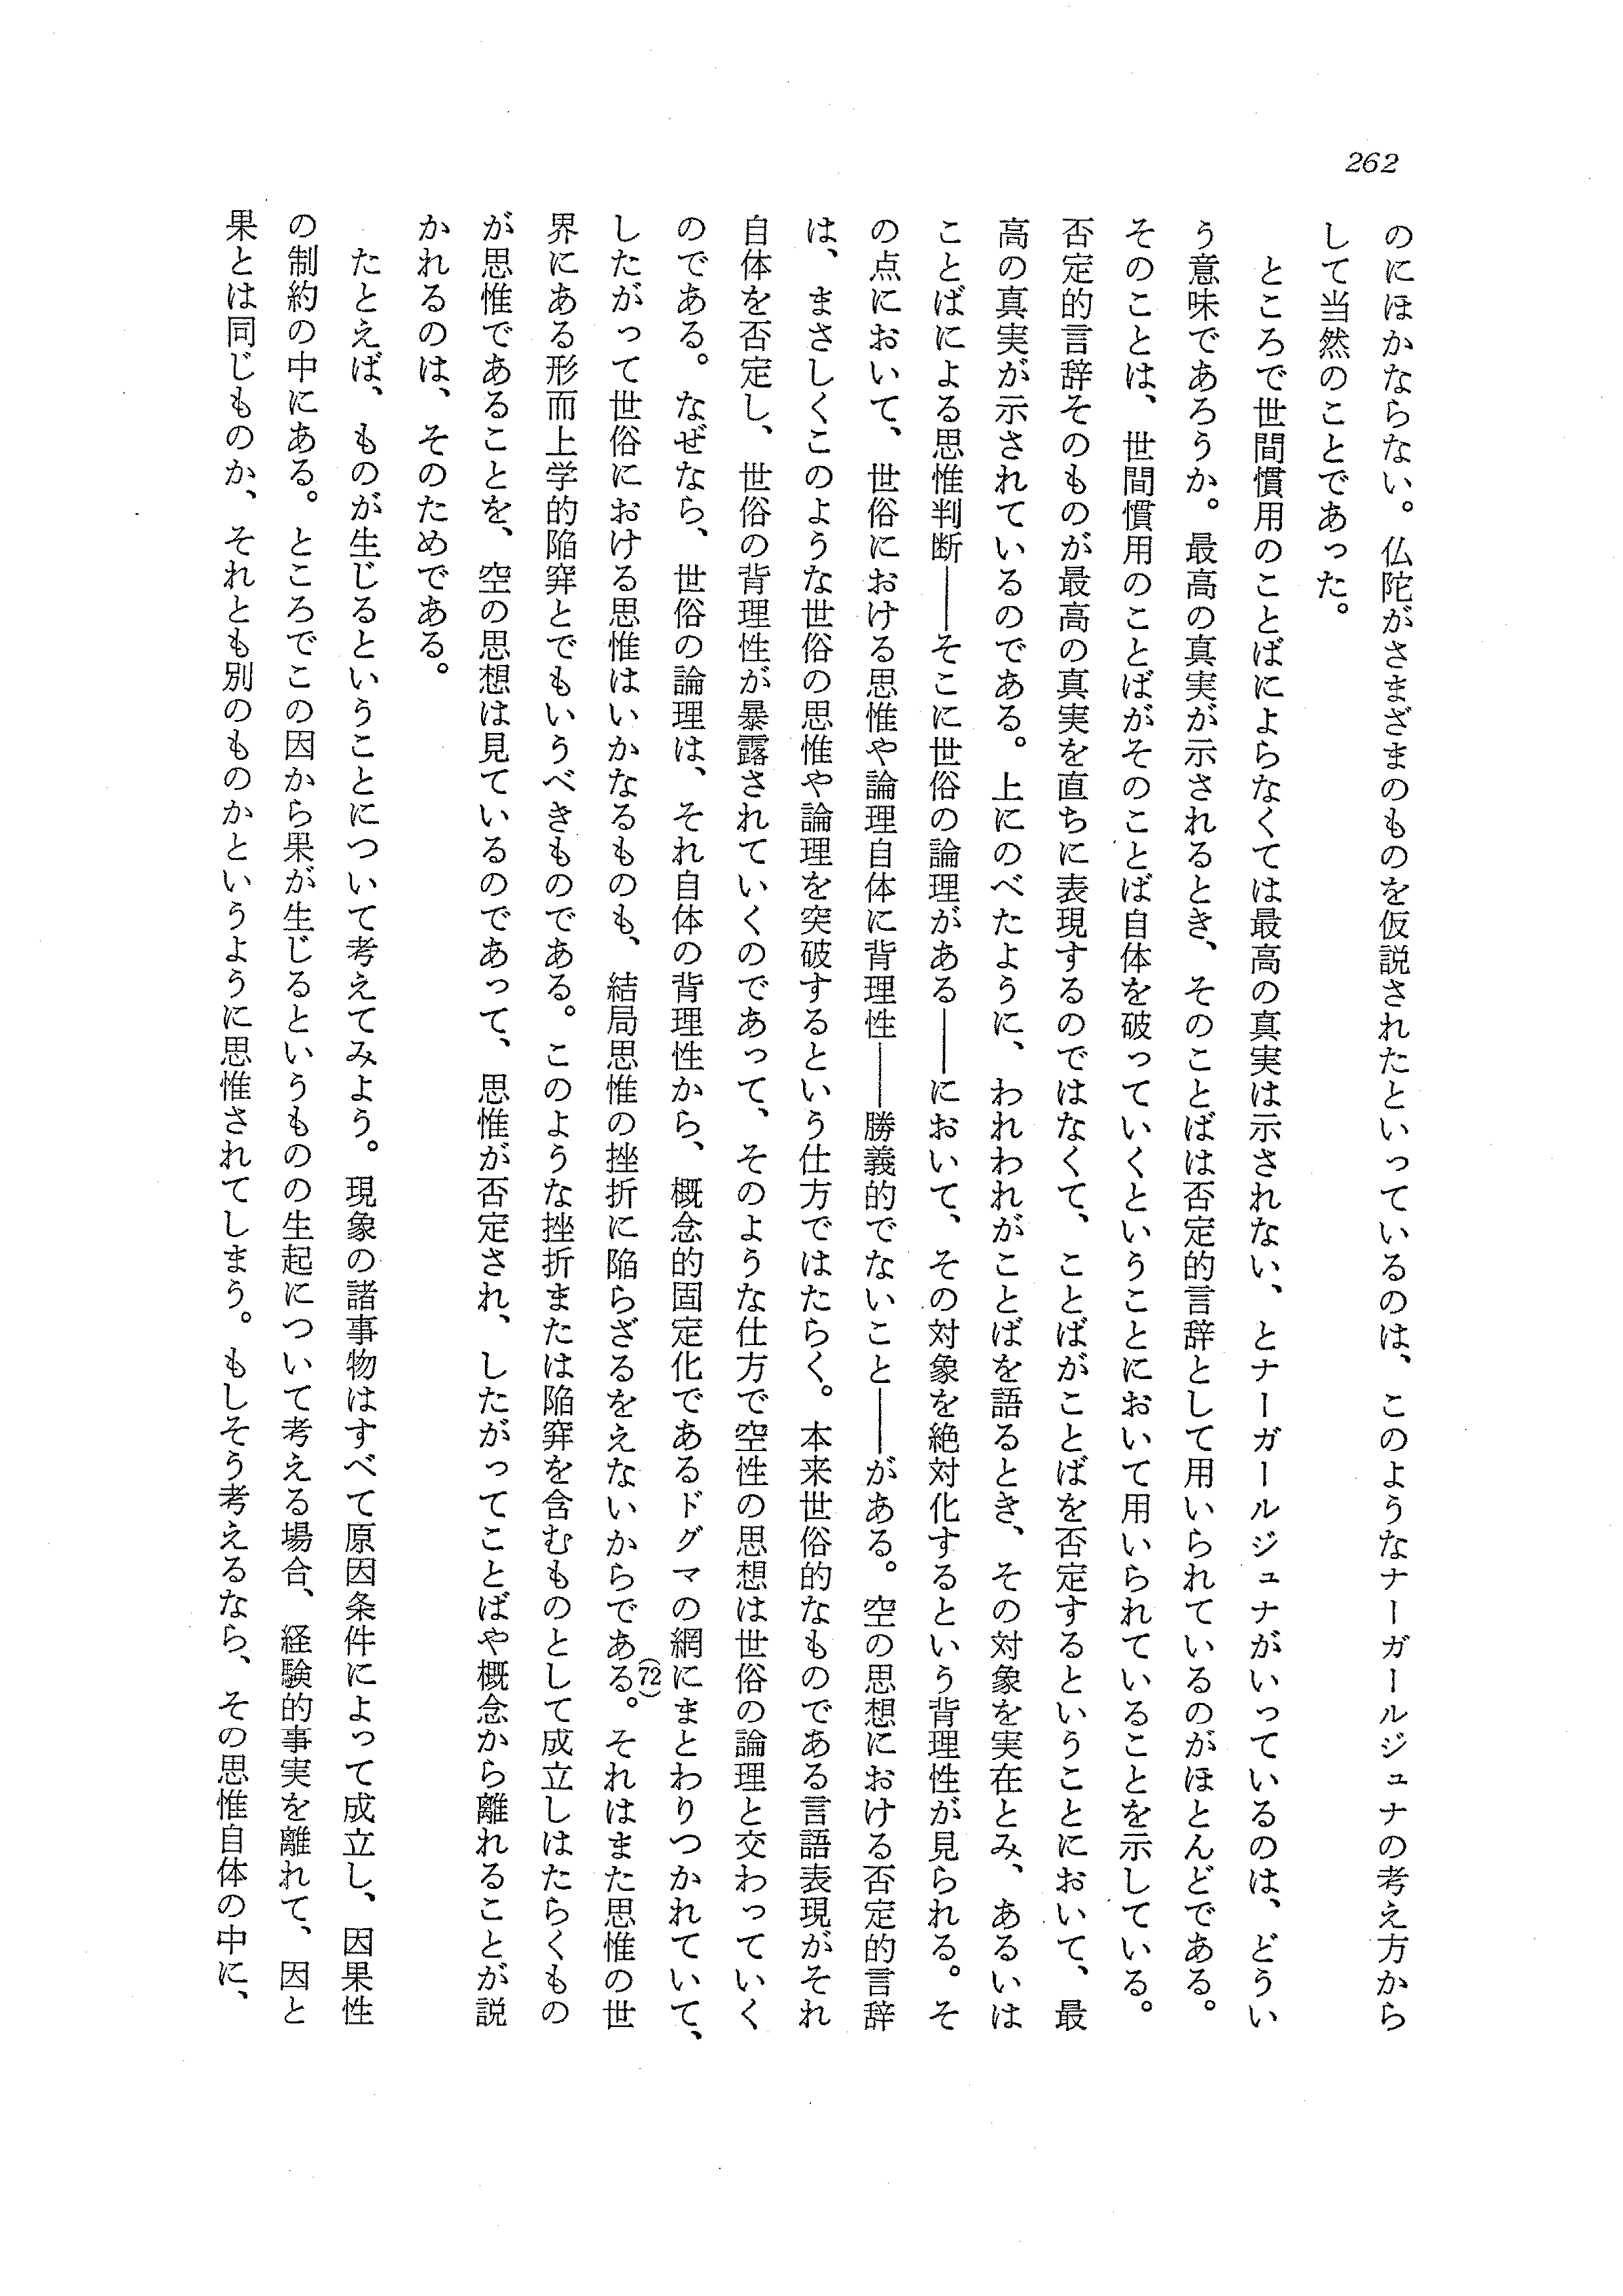 262
のにほかならない。仏陀がさまざまのものを仮説されたといっているのは、このようなナーガールジュナの考え方から
して当然のことであった。
ところで世間慣用のことばによらなくては最高の真実は示されない、とナーガールジュナがいっているのは、どうい
う意味であろうか。最高の真実が示されるとき、そのことばは否定的言辞として用いられているのがほとんどである。
そのことは、世間慣用のことばがそのことば自体を破っていくということにおいて用いられていることを示している。
否定的言辞そのものが最高の真実を直ちに表現するのではなくて、ことばがことばを否定するということにおいて、最
高の真実が示されているのである。上にのべたように、われわれがことばを語るとき、その対象を実在とみ、あるいは
ことばによる思惟判断――そこに世俗の論理がある――において、その対象を絶対化するという背理性が見られる。そ
の点において、世俗における思惟や論理自体に背理性――勝義的でないこと――がある。空の思想における否定的言辞
は、まさしくこのような世俗の思惟や論理を突破するという仕方ではたらく。本来世俗的なものである言語表現がそれ
自体を否定し、世俗の背理性が暴露されていくのであって、そのような仕方で空性の思想は世俗の論理と交わっていく
のである。なぜなら、世俗の論理は、それ自体の背理性から、概念的固定化であるドグマの網にまとわりつかれていて、
したがって世俗における思惟はいかなるものも、結局思惟の挫折に陥らざるをえないからである(72)。それはまた思惟の世
界にある形而上学的陥穽とでもいうべきものである。このような挫折または陥穽を含むものとして成立しはたらくもの
が思惟であることを、空の思想は見ているのであって、思惟が否定され、したがってことばや概念から離れることが説
かれるのは、そのためである。
たとえば、ものが生じるということについて考えてみよう。現象の諸事物はすべて原因条件によって成立し、因果性
の制約の中にある。ところでこの因から果が生じるというものの生起について考える場合、経験的事実を離れて、因と
果とは同じものか、それとも別のものかというように思惟されてしまう。もしそう考えるなら、その思惟自体の中に、